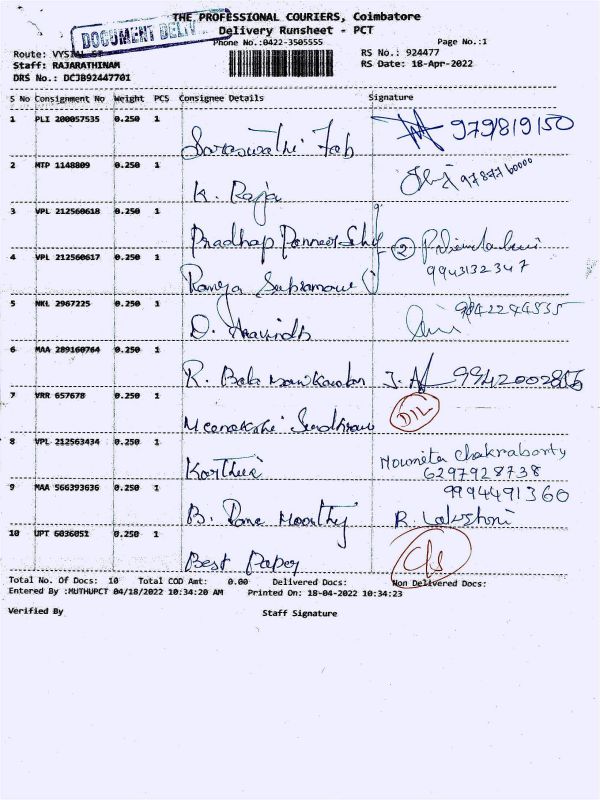 THE PROFESSIONAL COURIERS, Coimbatore
DOCUMENT DELIV
Delivery Runsheet - PCT
Phone No.:0422-3505555
Page No.:1
Route: VYSIAL ST
RS No.: 924477
Staff: RAJARATHINAM
RS Date: 18-Apr-2022
DRS No.: DCJB92447701
S No Consignment No Weight PCS Consignee Details Signature
1 PLI 200057535 0.250 1
Saraswathi Fab 979819150
2 MTP 1148809 0.250 1
K. Raja
3 VPL 212560618 0.250 1
Pradhap
2
4 VPL 212560617 0.250 1
9943132347
Ramya
5 NKL 2967225 0.250 1
9842244535
D. Aravindh
6 MAA 289160764 0.250 1
R. Bala Manikandan
7 VRR 657678 0.250 1
D/L
Meenakshi
8 VPL 212563434 0.250 1
Moumita Chakraborty
6297928738
9 MAA 566393636 0.250 1
9994491360
B. Rama Moorthy R. Lakshmi
10 UPT 6036051 0.250 1
Best Paper C/S
Total No. Of Docs: 10 Total COD Amt: 0.00 Delivered Docs: Non Delivered Docs:
Entered By :MUTHUPCT 04/18/2022 10:34:20 AM Printed On: 18-04-2022 10:34:23
Verified By Staff Signature